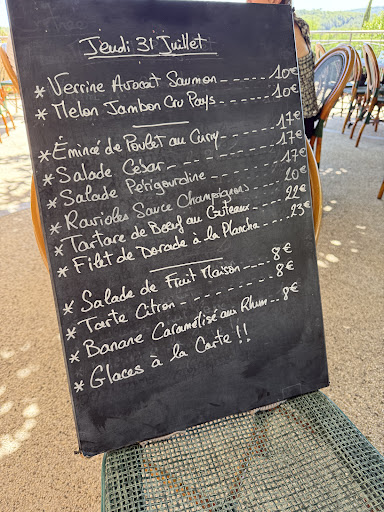 Jeudi 31 Juillet
* Verrine Avocat Saumon ---- 10€
* Melon Jambon Cru Pays ---- 10€
* Émincé de Poulet au Curry ---- 17€
* Salade César ---- 17€
* Salade Périgourdine ---- 17€
* Ravioles Sauce Champignons ---- 20€
* Tartare de Bœuf au Couteaux ---- 22€
* Filet de Dorade à la Plancha ---- 23€
* Salade de Fruit Maison ---- 8€
* Tarte Citron ---- 8€
* Banane Caramélisé au Rhum -- 8€
* Glaces à la Carte !!